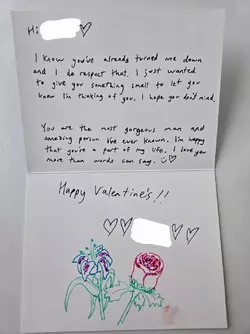 Hi
I know you've already turned me down
and I do respect that. I just wanted
to give you something small to let you
know I'm thinking of you. I hope you don't mind.
You are the most gorgeous man and
amazing person I've ever known. I'm happy
that you're a part of my life. I love you
more than words can say. ☺♡
Happy Valentine's!!